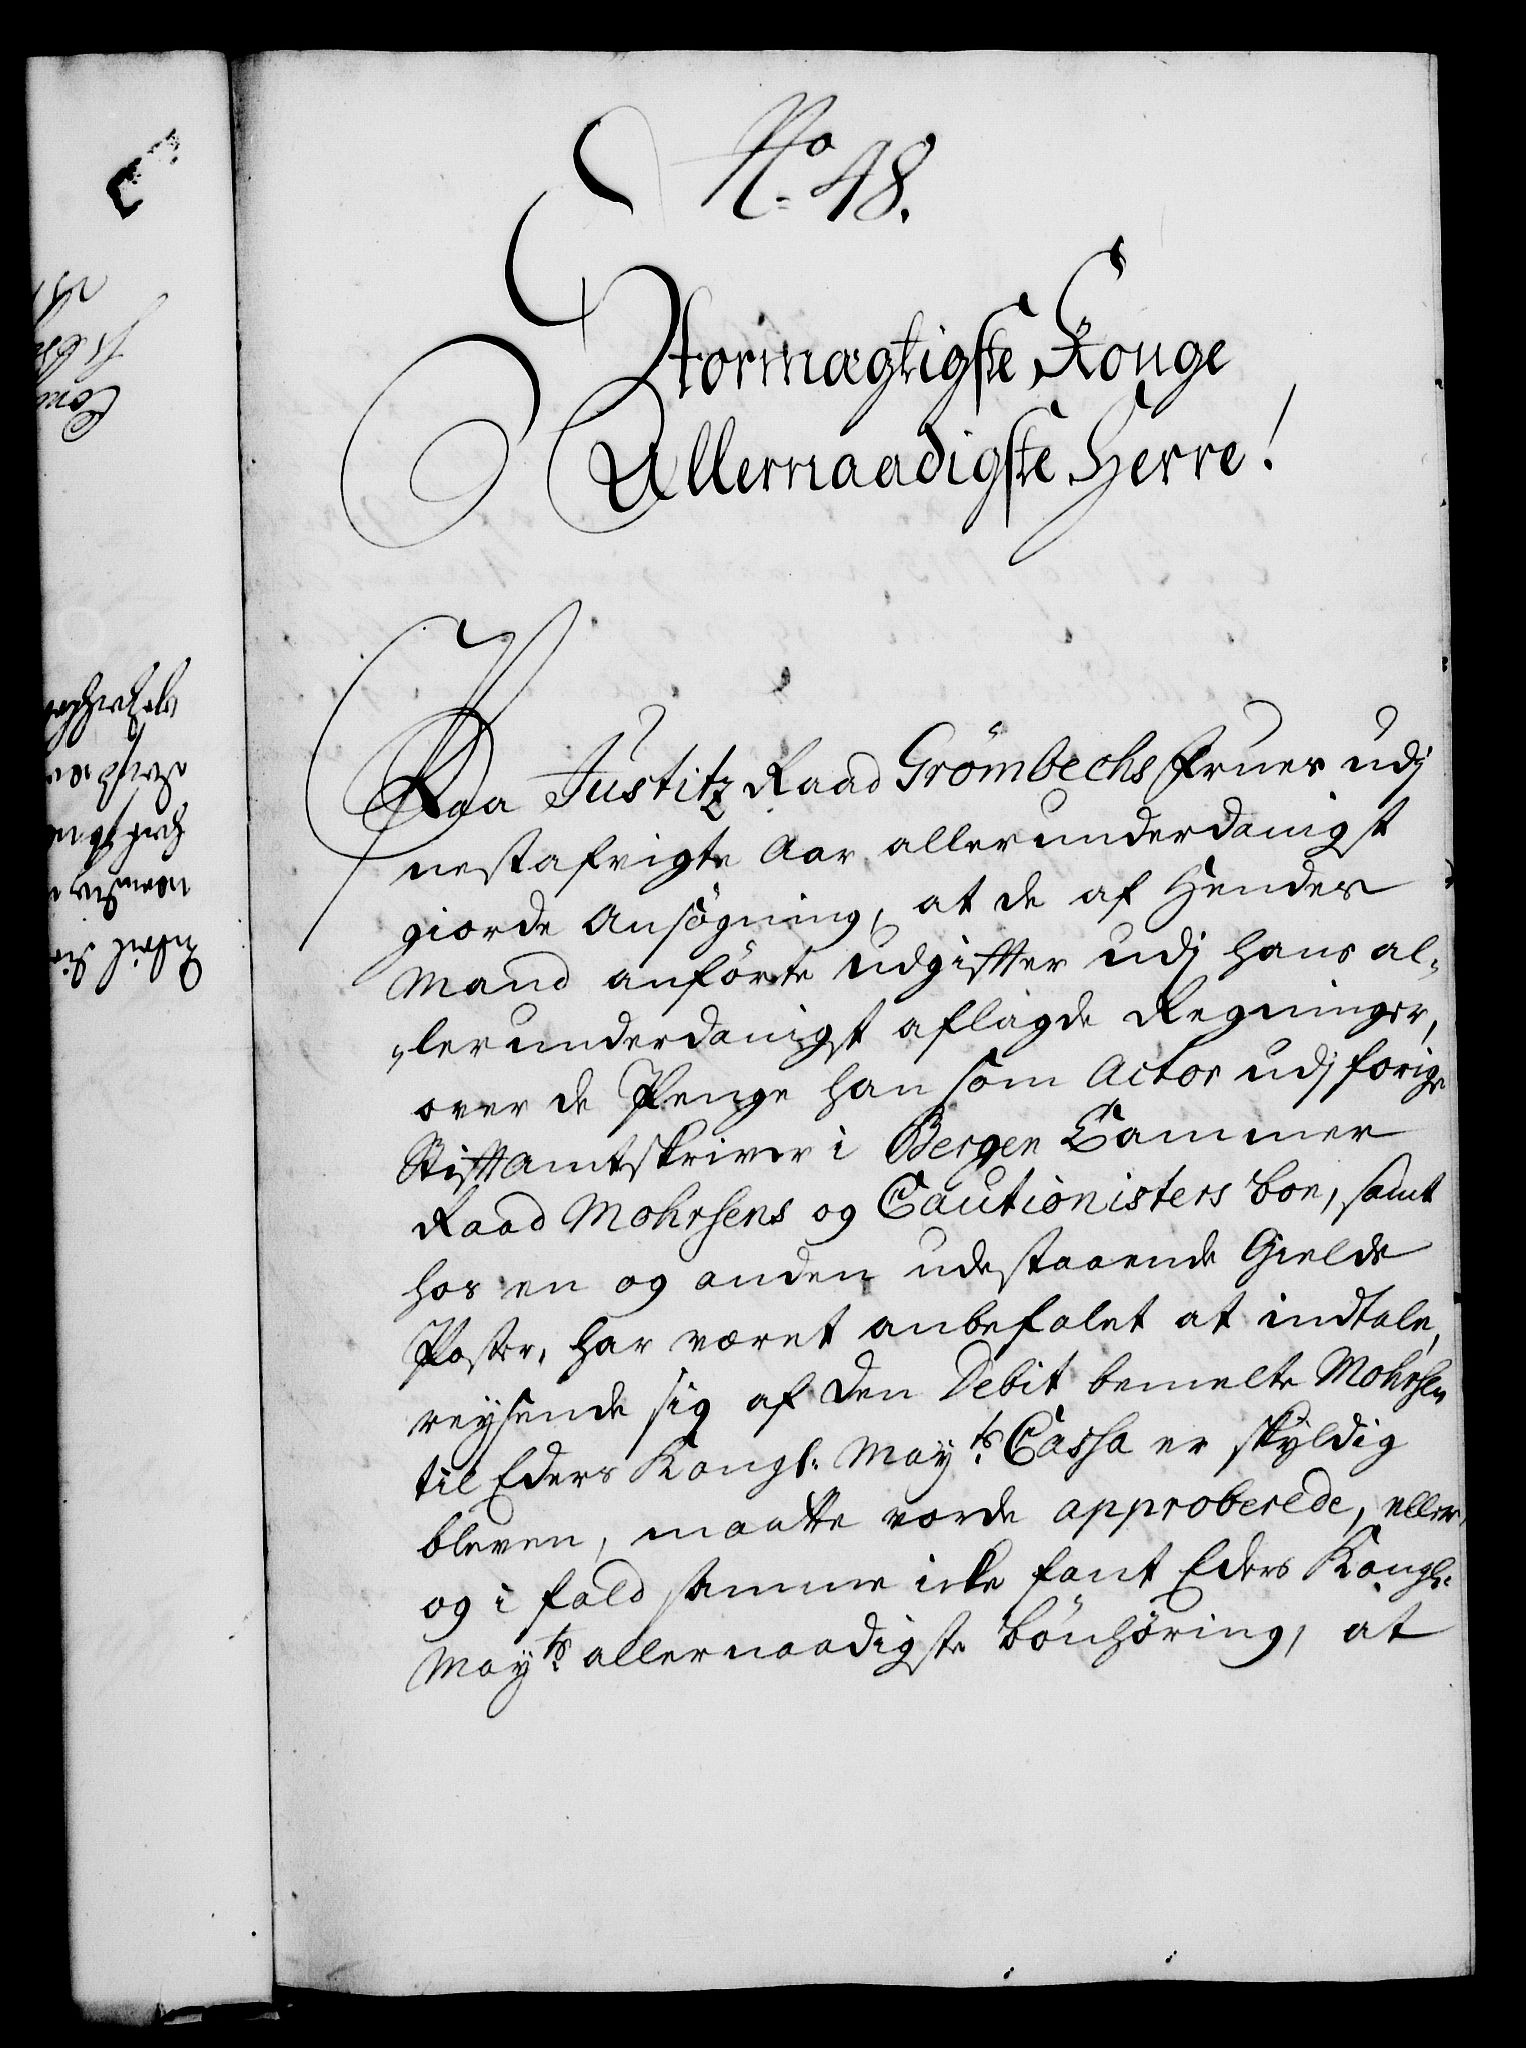 No. 48.
Stormægtigste Konge
Allernaadigste Herre!
Paa Justitz Raad Grömbechs Frues udj
nestafvigte Aar allerunderdanigst
giorde Ansøgning, at de af Hendes
Mand anførte Udgifter udj hans al-
„lerunderdanigst aflagde Regninger,
over de Penge han som Actor udj forige
Stiftamtskriver i Bergen Cammer
Raad Mohrsens og Cautionisters boe, samt
hos en og anden udestaaende Gields
Poster, har været anbefalet at indtale,
reysende sig af den Debit bemelte Mohrsen
til Eders Kongl: Mayts. Cassa er skyldig
bleven, maatte vorde approberede, eller,
og i fald samme icke fant Eders Kongl:
Mayts. allernaadigste bönhøring, at